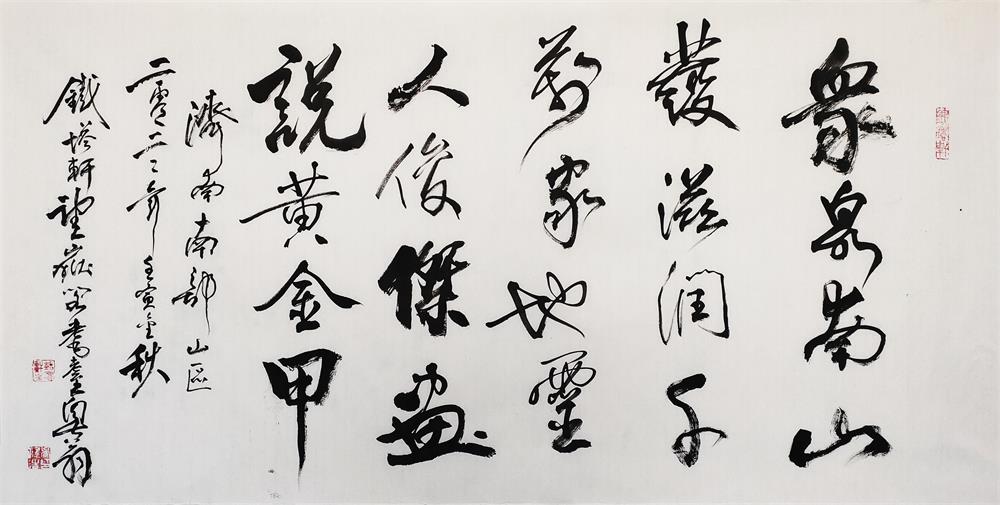 眾泉南山
發滋潤千
萬家地靈
人俊傑盡
說黃金甲
濟南南部山區
二零二二年壬寅金秋
鐵塔軒望嶽